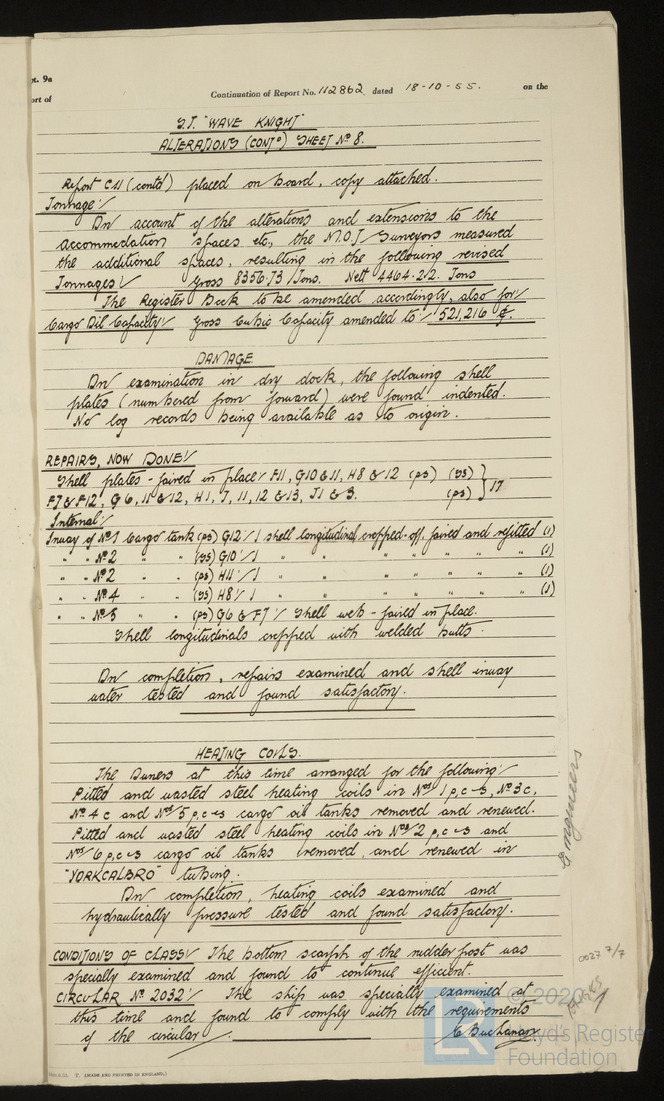 pt. 9a
ort of
Continuation of Report No. 112862 dated 18-10-55. on the
S.T. "WAVE KNIGHT"
ALTERATIONS (CONTD) SHEET No 8.
Report C11 (contd) placed on board, copy attached.
Tonnage
On account of the alterations and extensions to the
accommodation spaces etc, the M.O.T Surveyors measured
the additional spaces, resulting in the following revised
Tonnages Gross 8356.73 Tons. Nett 4464.22. Tons
The Register Book to be amended accordingly, also for
Cargo Oil Capacity Gross Cubic Capacity amended to 521,216 cf.
DAMAGE
On examination in dry dock, the following shell
plates (numbered from forward) were found indented.
No log records being available as to origin.
REPAIRS, NOW DONE
Shell plates - faired in place F11, G10 & 11, H8 & 12 (ps) (ss)
F7 & F12, G6, 11 & 12, H1, 7, 11, 12 & 13, J1 & 3. (ps) } 17
Internal
Inway of No 1 Cargo tank (ps) G12 1 shell longitudinal cropped-off, faired and refitted (1)
" " No 2 " " (ss) G10 1 " " " " " " (1)
" " No 2 " " (ps) H11 1 " " " " " " (1)
" " No 4 " " (ss) H8 1 " " " " " " (1)
" " No 5 " " (ps) G6 & F7 Shell web - faired in place.
Shell longitudinals cropped with welded butts.
On completion, repairs examined and shell inway
water tested and found satisfactory.
HEATING COILS.
The Owners at this time arranged for the following
Pitted and wasted steel heating coils in Nos 1 p, c & s, No 3 c,
No 4 c and Nos 5 p, c & s cargo oil tanks removed and renewed.
Pitted and wasted steel heating coils in Nos 2 p, c & s and
Nos 6 p, c & s cargo oil tanks removed and renewed in
"YORKCALBRO" tubing.
On completion, heating coils examined and
hydraulically pressure tested and found satisfactory.
CONDITIONS OF CLASS The bottom scarph of the rudder post was
specially examined and found to continue efficient.
CIRCULAR No 2032 The ship was specially examined at
this time and found to comply with the requirements
of the circular
C Buchanan
Engineers
0027 7/7
PAGES
7
© 2020
Lloyd's Register
Foundation
T. (MADE AND PRINTED IN ENGLAND.)